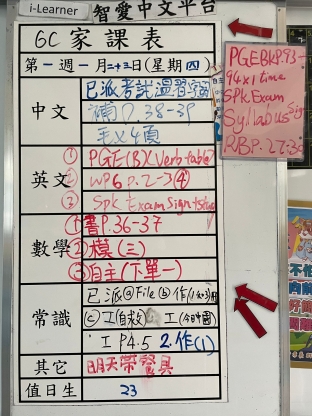 i-Learner 智愛中文平台
6C 家課表
第一週一月二十三日(星期四)
中文
已派考試溫習
補P.38-39
毛x4頁
英文
① PGE(B)(Verb table)
② WP6 P.2-3④
③ Spk Exam Sign
數學
①書P.36-37
②模(三)
③自主(下單一)
常識
已派ⓐFileⓑ作
ⓒ工 工
工P4.5 2.作(1)
其它
明天帶餐具
值日生
23
PGEBKP.93-
94x1 time
Spk Exam
Syllabus Sign
RBP.